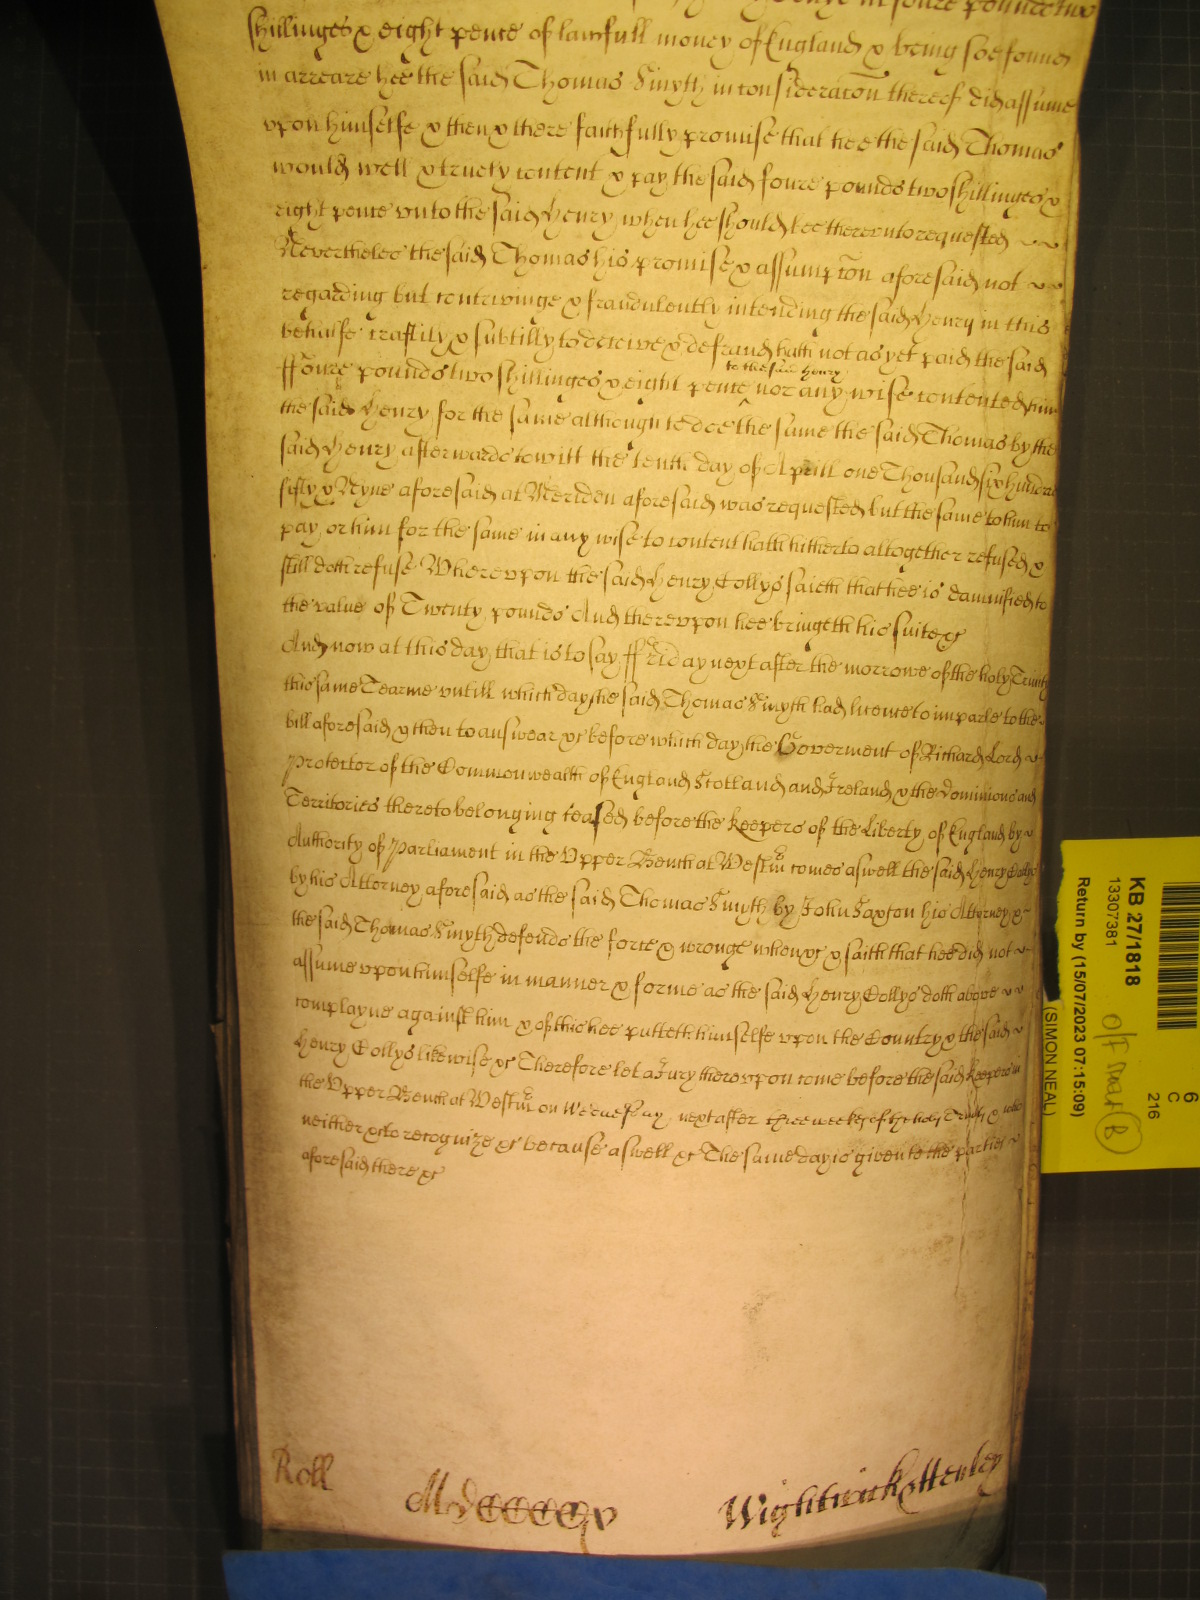 in foure pounds two
shillinges & eight pence of lawfull money of England & being soe found
in arreare hee the said Thomas Smyth in consideracon thereof did assume
vpon himselfe & then & there faithfully promise that hee the said Thomas
would well & truely content & pay the said foure pounds two shillinges &
eight pence vnto the said Henry when hee should bee therevnto requested
Neverthelesse the said Thomas his promise & assumpcon aforesaid not
regarding but contrivinge & fraudulently intending the said Henry in this
behalfe craftily & subtilly to deceive & defraud hath not as yet paid the said
to the said Henry
ffoure pounds two shillinges & eight pence nor any wise contented him
the said Henry for the same although to doe the same the said Thomas by the
said Henry afterwards to witt the tenth day of Aprill one Thousand six hundred
fifty & Nyne aforesaid at Meriden aforesaid was requested but the same to him to
pay or him for the same in any wise to content hath hitherto altogether refused &
still doth refuse Wherevpon the said Henry Collys saieth that hee is damnified to
the value of Twenty pounds And therevpon hee bringeth his suite &c
And now at this day that is to say ffriday next after the morrowe of the holy Trinity
this same Tearme vntill which day the said Thomas Smyth had licence to imparle to the
bill aforesaid & then to answear &c before which day the Goverment of Richard Lord
Protector of the Commonwealth of England Scotland and Ireland & the Dominions and
Territories thereto belonging ceased before the keepers of the Liberty of England by
Authority of Parliament in the Vpper Bench at Westmr comes aswell the said Henry Collys
by his Attorney aforesaid as the said Thomas Smyth by John Saxton his Attorney &
the said Thomas Smyth defends the force & wronge when &c & saith that hee did not
assume vpon himselfe in manner & forme as the said Henry Collys doth above
complayne against him & of this hee putteth himselfe vpon the Country & the said
Henry Collys likewise &c Therefore let a Jury therevpon come before the said keepers in
the Vpper Bench at Westmr on Wednesday next after three weekes of the holy Trinity & who
neither &c to recognize &c because aswell &c The same day is given to the parties
aforesaid there &c
Roll
MdCCCCxv
Wightwick & Henley
KB 27/1818
13307381
Return by (15/07/2023 07:15:09)
(SIMON NEAL)
6
C
216